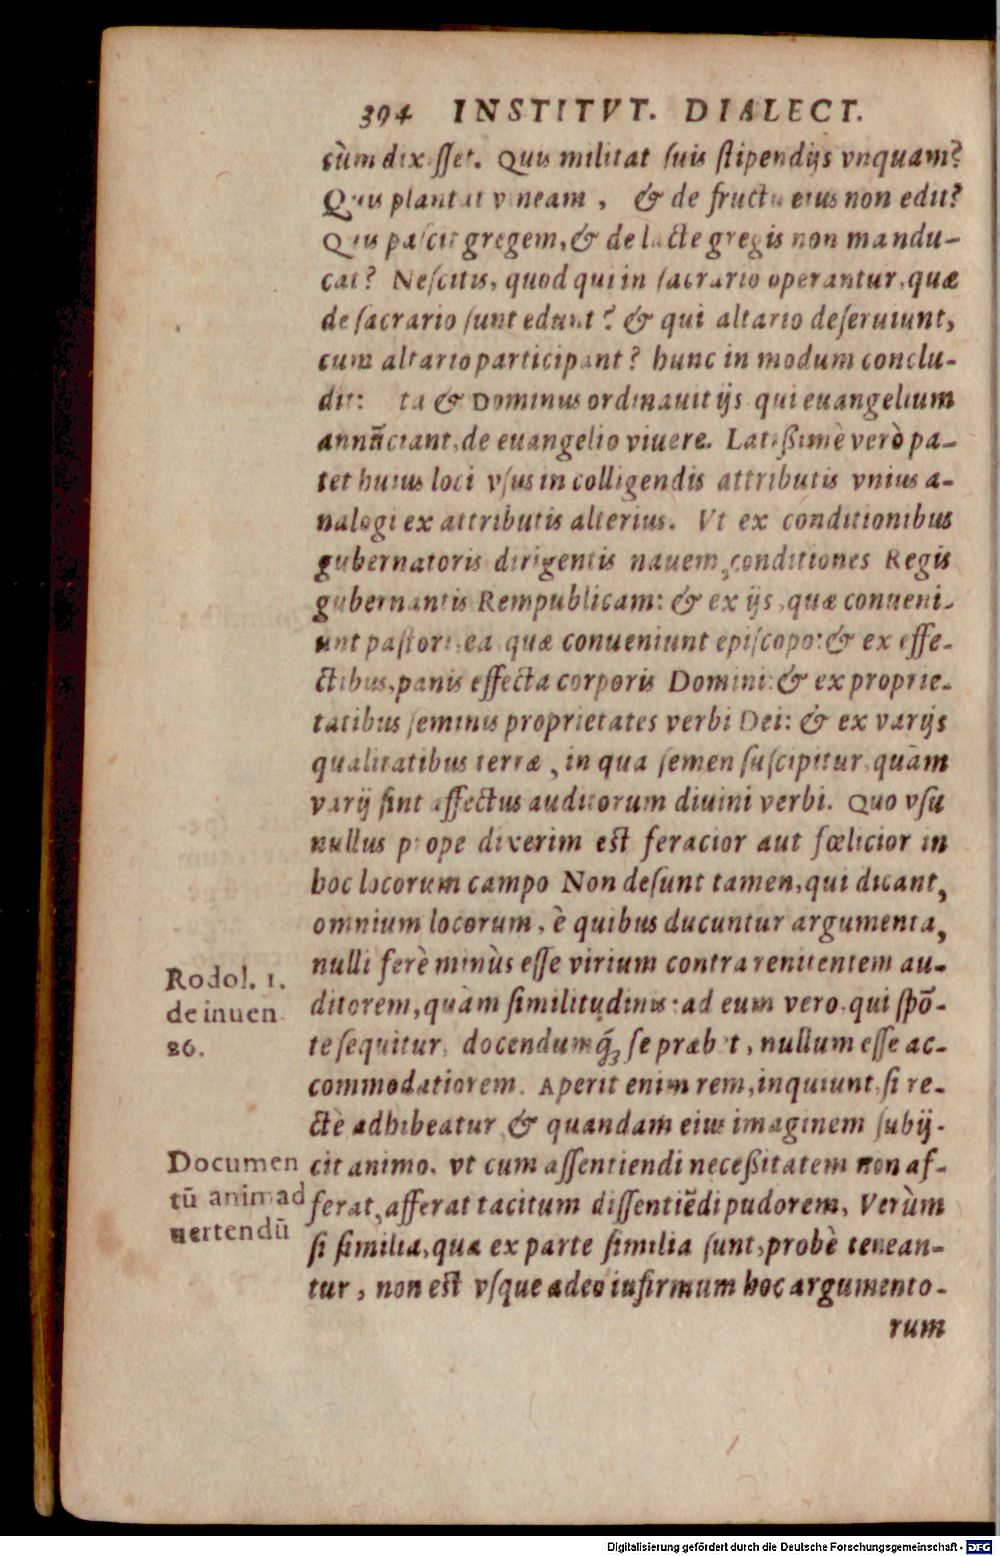 394 INSTITVT. DIALECT.
cùm dixisset. Quis militat suis stipendijs vnquam?
Quis plantat vineam, & de fructu eius non edit?
Quis pascit gregem, & de lacte gregis non mandu-
cat? Nescitis, quod qui in sacrario operantur, quæ
de sacrario sunt edunt? & qui altario deseruiunt,
cum altario participant? hunc in modum conclu-
dit: ta & Dominus ordinauit ijs qui euangelium
annũciant, de euangelio viuere. Latißimè verò pa-
tet huius loci vsus in colligendis attributis vnius a-
nalogi ex attributis alterius. Vt ex conditionibus
gubernatoris dirigentis nauem, conditiones Regis
gubernantis Rempublicam: & ex ijs, quæ conueni-
unt pastori, ea quæ conueniunt episcopo: & ex effe-
ctibus, panis effecta corporis Domini: & ex proprie-
tatibus seminis proprietates verbi Dei: & ex varijs
qualitatibus terræ, in qua semen suscipitur, quàm
varij sint affectus auditorum diuini verbi. Quo vsu
nullus prope dixerim est feracior aut fœlicior in
hoc locorum campo Non desunt tamen, qui dicant,
omnium locorum, è quibus ducuntur argumenta,
nulli ferè minùs esse virium contra renitentem au-
ditorem, quàm similitudinis: ad eum vero, qui spõ-
te sequitur, docendumq́ʒ se præbet, nullum esse ac-
commodatiorem. Aperit enim rem, inquiunt, si re-
ctè adhibeatur, & quandam eius imaginem subij-
cit animo, vt cum assentiendi neceßitatem non af-
ferat, afferat tacitum dissentiẽdi pudorem, Verùm
si similia, quæ ex parte similia sunt, probè tenean-
tur, non est vsque adeo infirmum hoc argumento-
rum
Rodol. 1.
de inuen.
26.
Documen
tũ animad
uertendũ
Digitalisierung gefördert durch die Deutsche Forschungsgemeinschaft - DFG